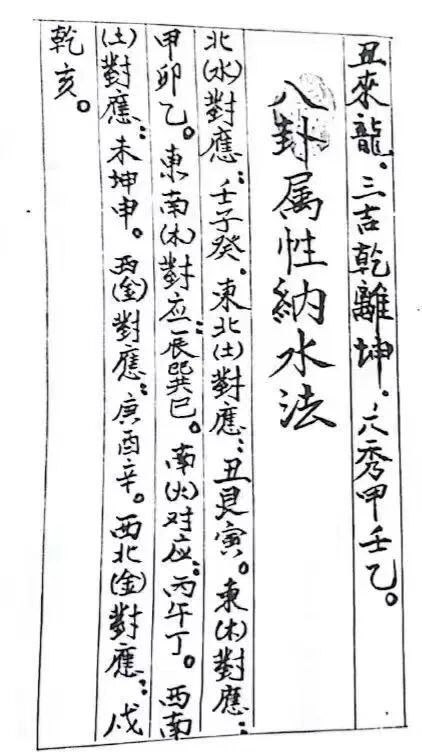 丑來龍。三吉乾離坤。六秀甲壬乙。
八卦属性納水法
北(水)對應:壬子癸。東北(土)對應:丑艮寅。東(木)對應:
甲卯乙。東南(木)對应:辰巽巳。南(火)对应:丙午丁。西南
(土)對應:未坤申。西(金)對應:庚酉辛。西北(金)對應:戌
乾亥。